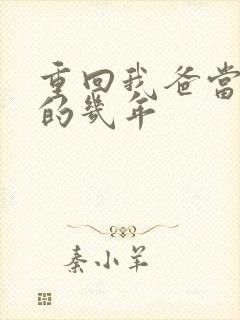 重回我爸当
的几年
秦小羊